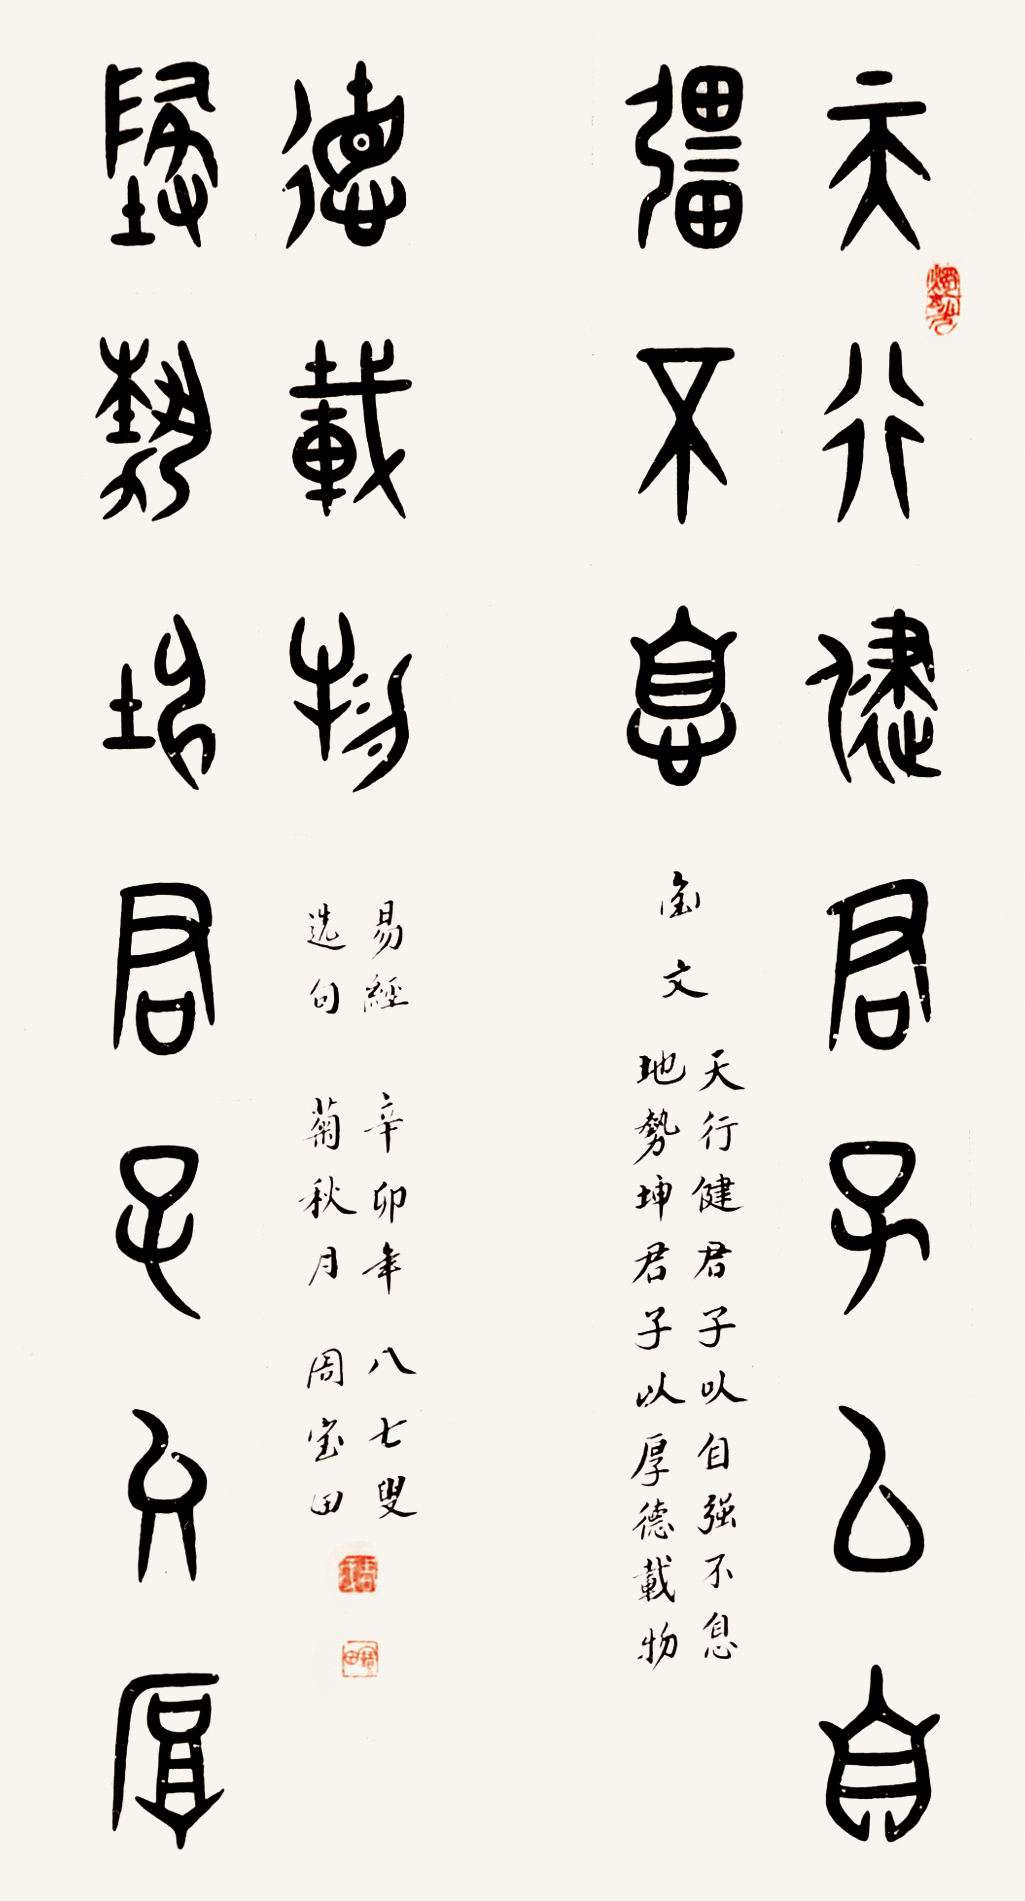 天行健君子以自
彊不息
金文
天行健君子以自强不息
地勢坤君子以厚德載物
墬埶坤君子以厚
德載物
易經
选句
辛卯年
菊秋月
八七叟
周宝田